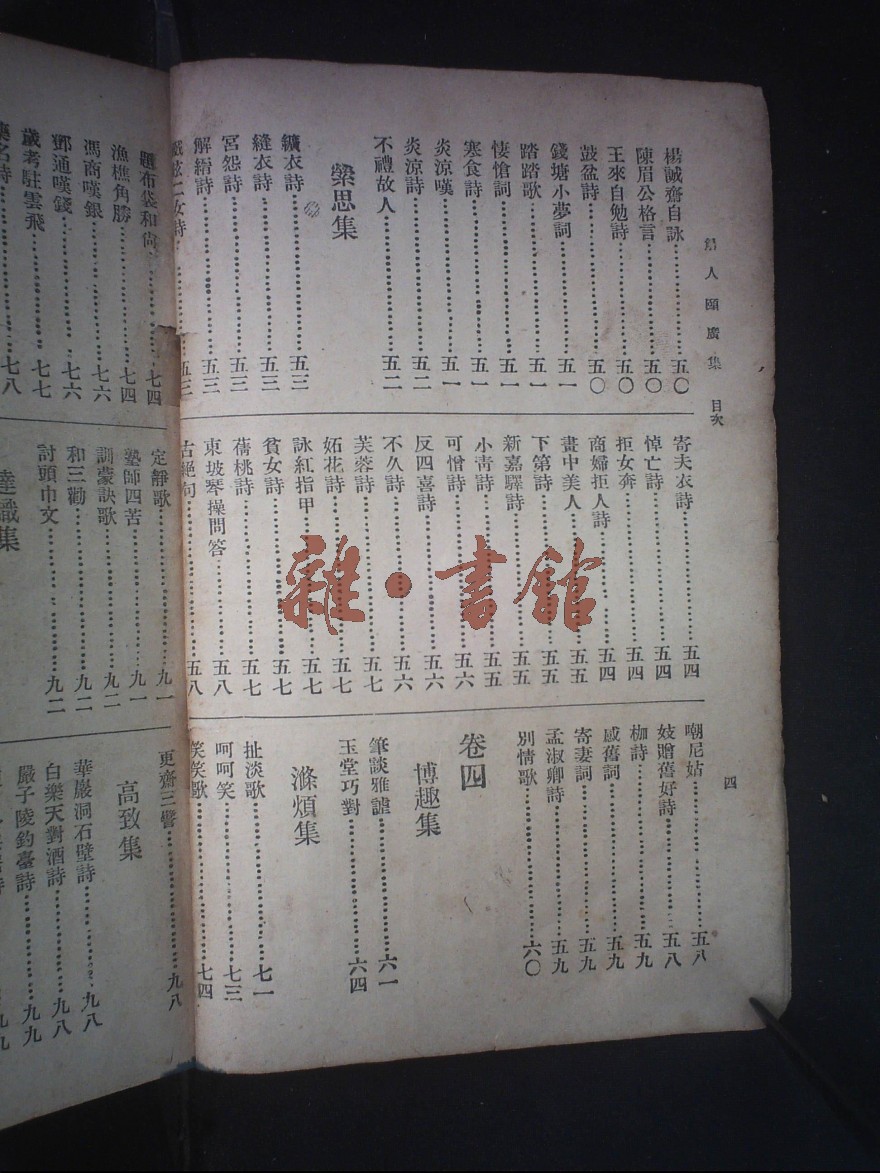 人頤廣集 目次
四
楊誠齋自詠……五〇
陳眉公格言……五〇
王來自勉詩……五〇
鼓盆詩……五〇
錢塘小夢詞……五一
踏踏歌……五一
悽愴詞……五一
寒食詩……五一
炎涼嘆……五一
炎涼詩……五二
不禮故人……五二
欒思集
纊衣詩……五三
縫衣詩……五三
宮怨詩……五三
解縉詩……五三
二女詩……五三
寄夫衣詩……五四
悼亡詩……五四
拒女奔……五四
商婦拒人詩……五四
畫中美人……五五
下第詩……五五
新嘉驛詩……五五
小靑詩……五五
可憎詩……五六
反四喜詩……五六
不久詩……五六
芙蓉詩……五七
妬花詩……五七
詠紅指甲……五七
貧女詩……五七
蒨桃詩……五七
東坡琴操問答……五八
古絕句……五八
嘲尼姑……五八
妓贈舊好詩……五八
枷詩……五九
感舊詞……五九
寄妻詞……五九
孟淑卿詩……五九
別情歌……六〇
卷四
博趣集
筆談雅謔……六一
玉堂巧對……六四
滌煩集
扯淡歌……七一
呵呵笑……七三
笑笑歌……七四
題布袋和尙……七四
漁樵角勝……七四
馮商嘆銀……七六
鄧通嘆錢……七六
歲考駐雲飛……七七
藥名詩……七八
定靜歌……九一
塾師四苦……九一
訓蒙訣歌……九二
和三勸……九二
討頭巾文……九二
達識集
更齋三譬……九八
高致集
華巖洞石壁詩……九八
白樂天對酒詩……九八
嚴子陵釣臺詩……九九
雜·書館